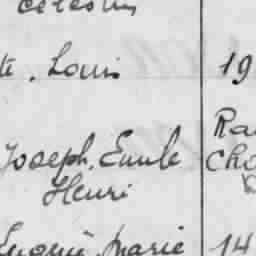 Celestin
te, Louis 19
Ra
Joseph, Emile Cho
Henri
Eugénie, Marie 14